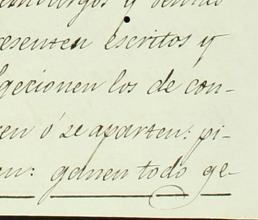 embargos y demas
resenten escritos y
gecionen los de con-
en ó se aparten: pi-
en: ganen todo ge-